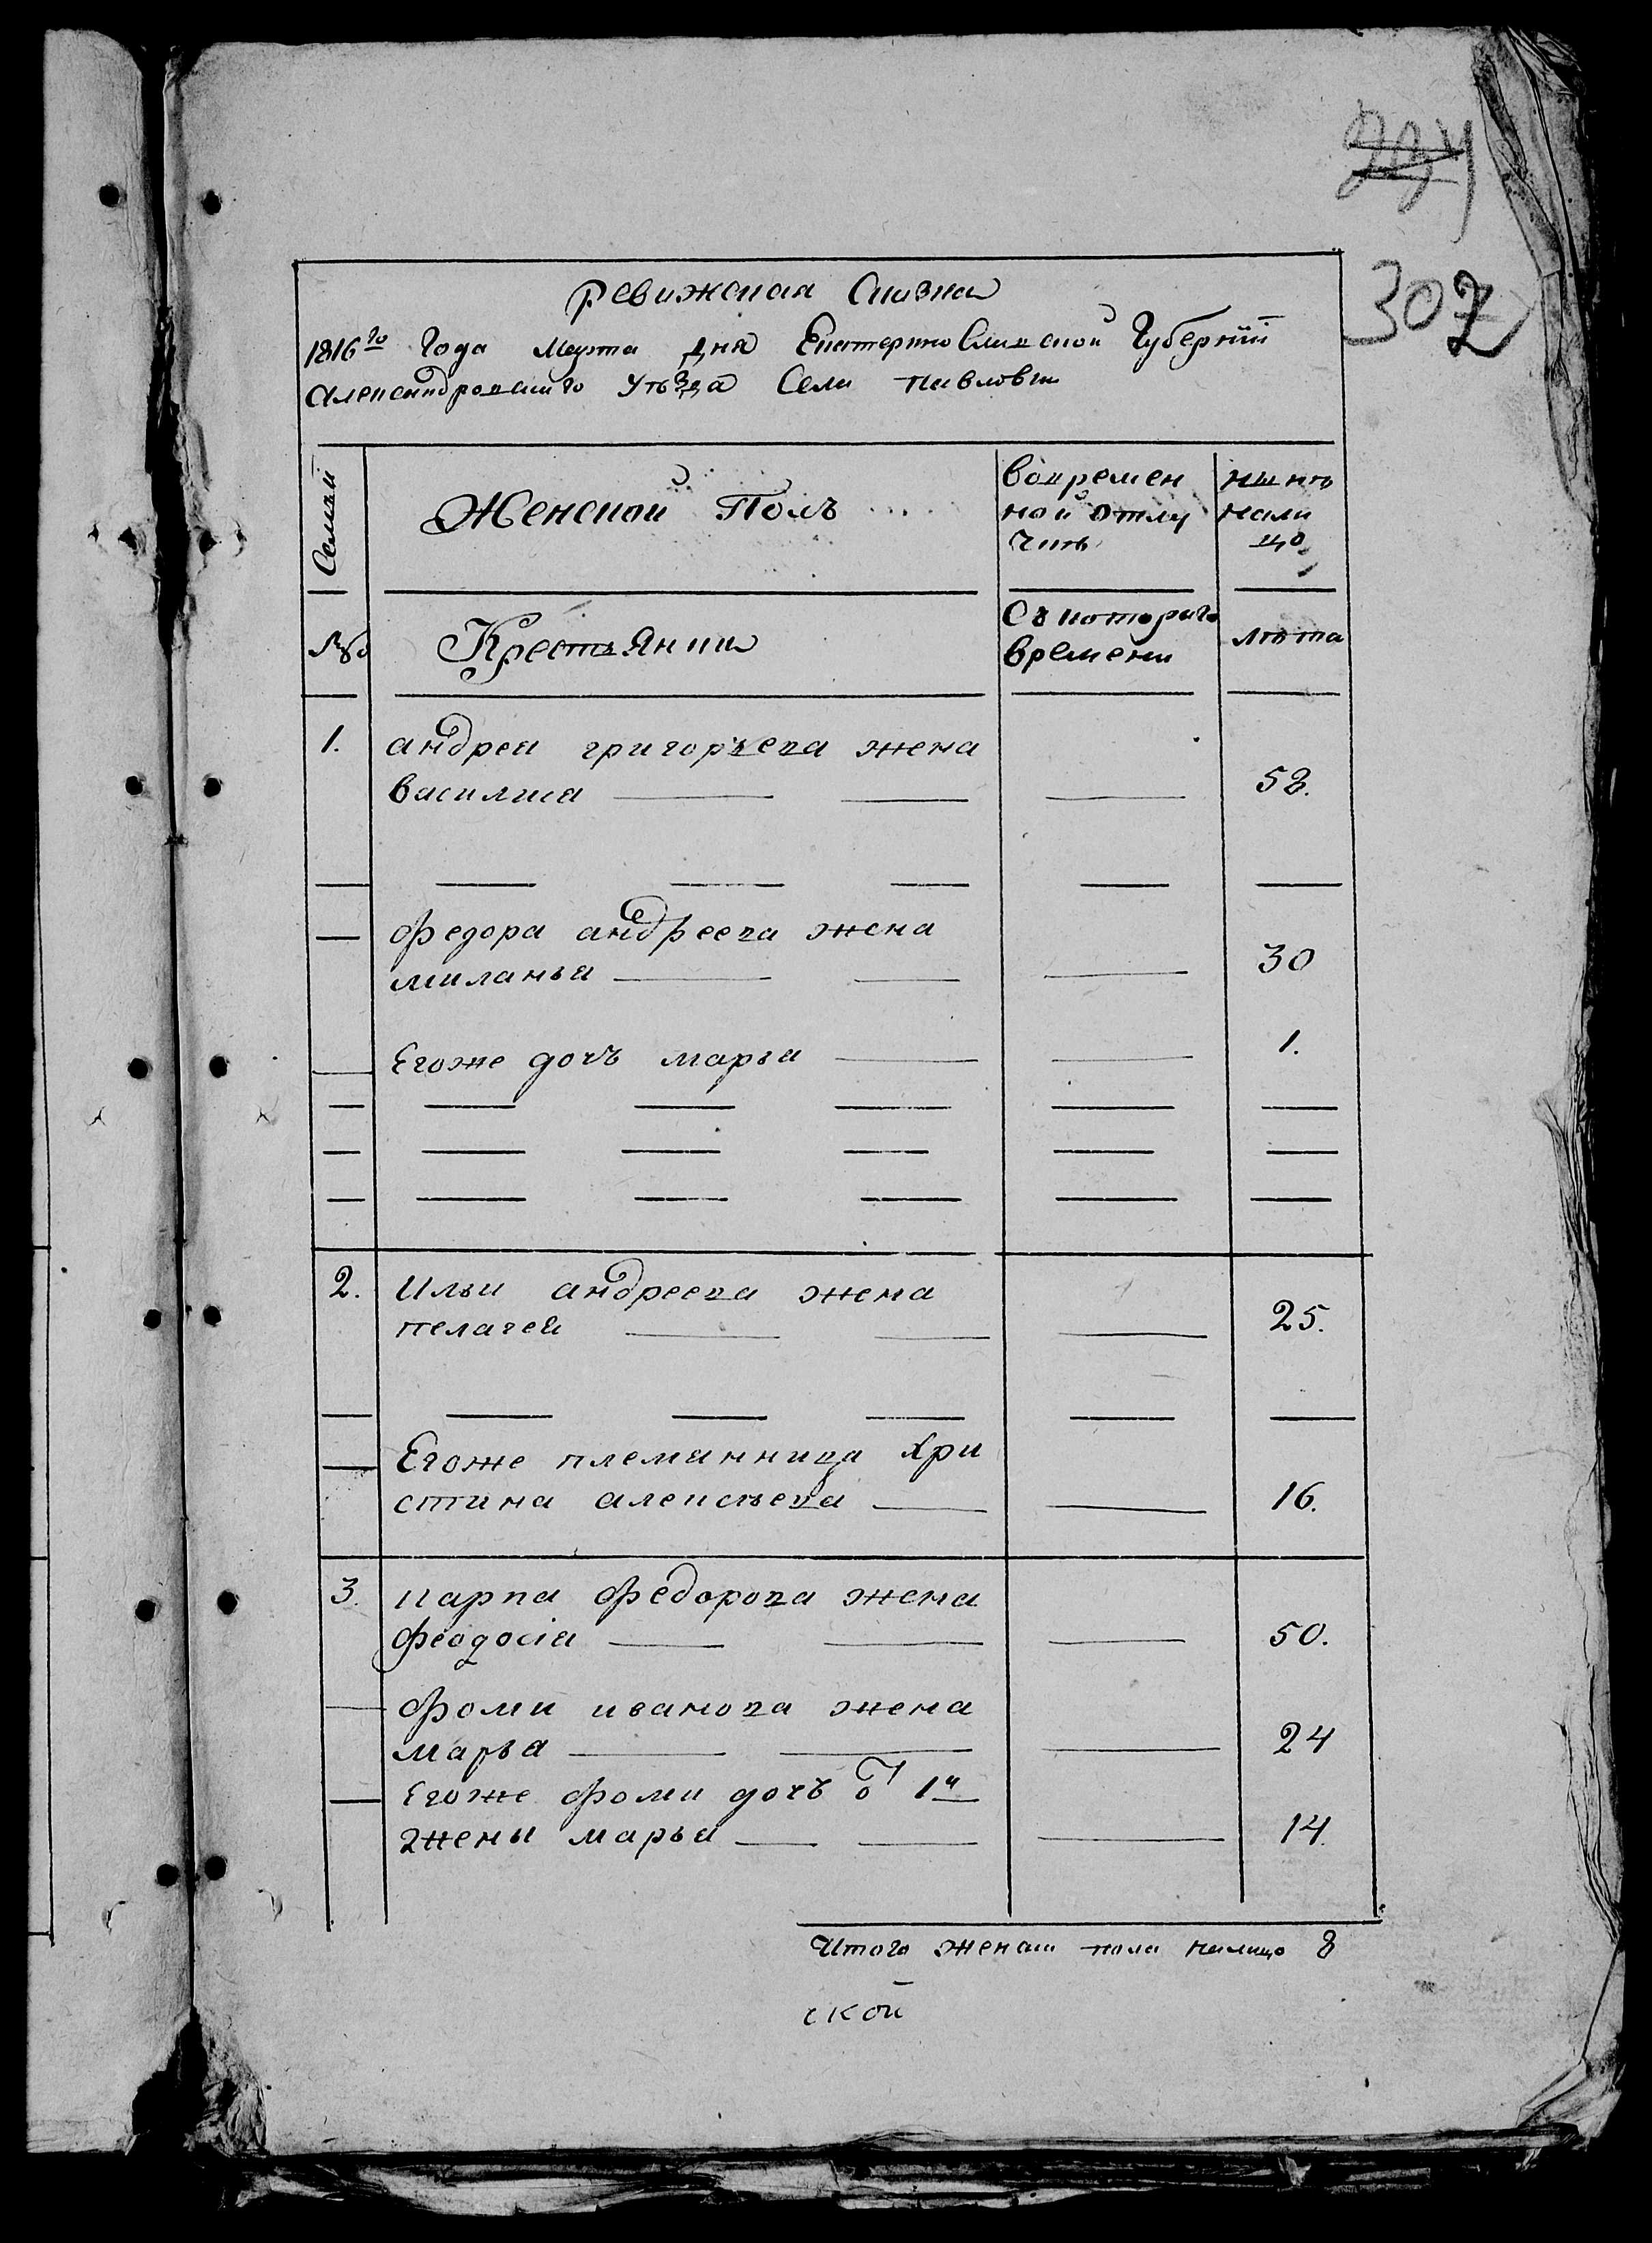 307
Ревижская Сказка
1816го Года Марта дня Екатерино Славской Губернии
Александровскаго Уѣзда Села Павловки
Семьи
Женской Полъ
Вовремен
ной отлу
чкѣ
нынѣ
нали
цо
№
Крестьянки
Съ котораго
времени
лѣта
1.
андрея григорьева жена
василиса
52.
федора андреева жена
миланья
30
Егоже дочь марья
1.
2.
Ильи андреева жена
пелагея
25.
Егоже племянница Хри
стина алексѣева
16.
3.
карпа федорова жена
феодосiя
50.
фомы иванова жена
марья
24
Егоже фомы дочъ от 1й
жены марья
14.
Итого женска пола налицо 8
ской